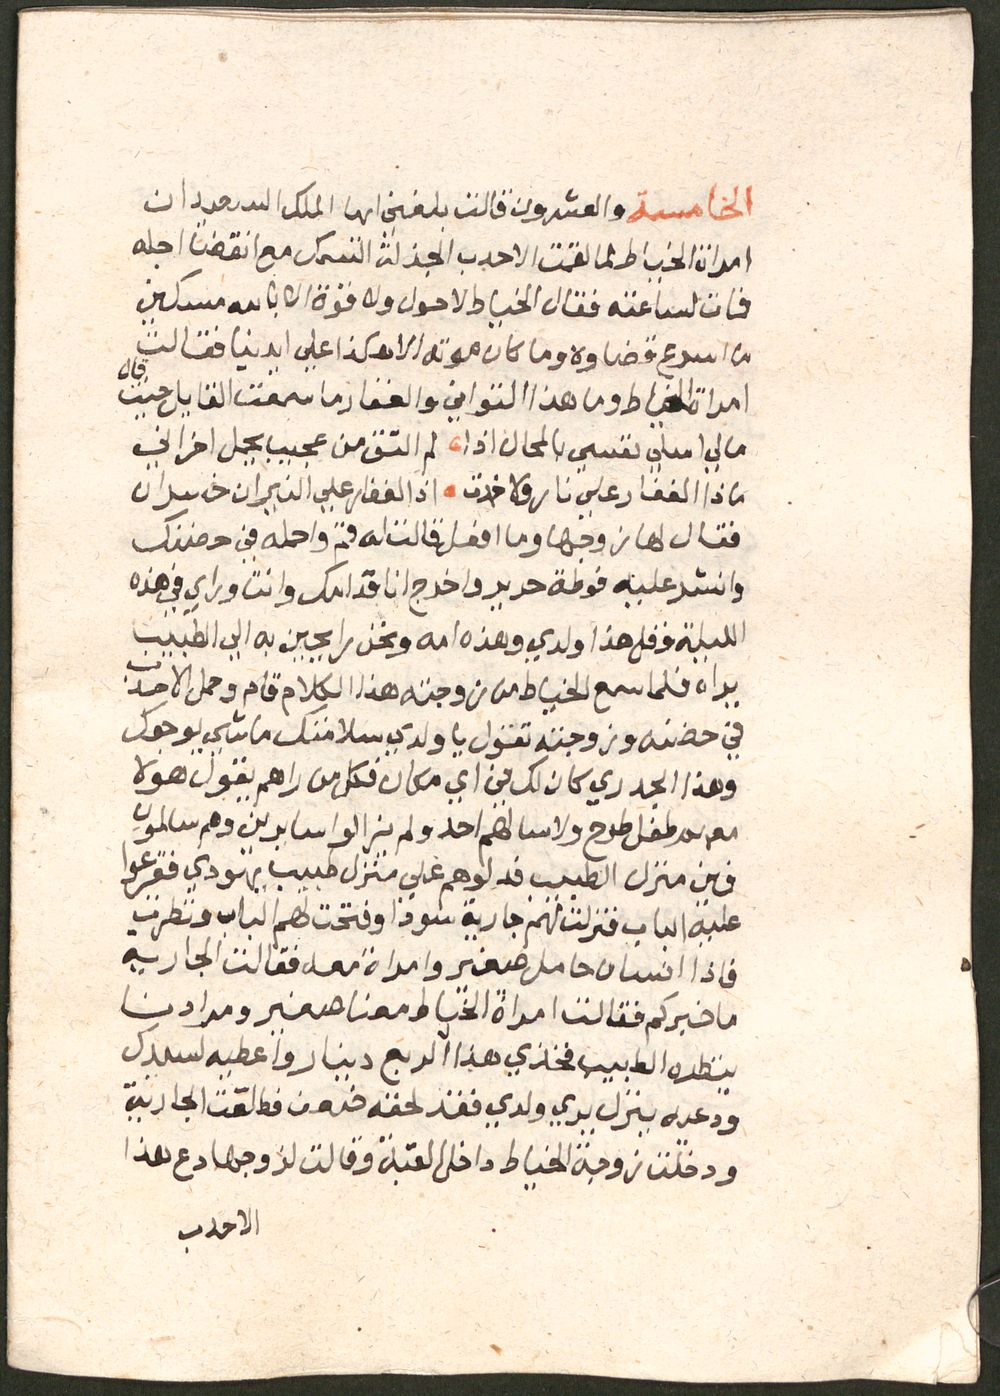 الخامسة والعشرون قالت بلغني ايها الملك السعيد ان
امراة الخياط لما لقمت الاحدب الجذلة السمك مع انقضا اجله
فمات لساعته فقال الخياط لاحول ولا قوة الا بالله مسكين
ما اسرع قضاوه وما كان موته الا هكذا علي ايدينا فقالت
امراة الخياط وما هذا التواني والغفار ما سمعت القايل حيث قال
مالي اسلي نفسي بالمحال اذا لم التق من عجيب يحمل احزاني
ماذا القفار علي نار ولا خمدت اذ القفار علي النيران خسران
فقال لها زوجها وما افعل قالت له قم واحمله في حضنك
وانشر عليه فوطة حرير واخرج انا قدامك وانت وراي في هذه
الليلة وقل هذا ولدي وهذه امه ونحن رايحين به الي الطبيب
يراه فلما سمع الخياط من زوجته هذا الكلام قام وحمل الاحدب
في حضنه وزوجته تقول يا ولدي سلامتك ماشي يوجعك
وهذا الجدري كان لك في اي مكان فكل من راهم يقول هولا
معهم طفل طرح ولا سالهم احد ولم يزالوا سايرين وهم سالمون
في منزل الطبيب فدلوهم علي منزل طبيب يهودي فقرعوا
عليه الباب فنزلت لهم جارية سودا وفتحت لهم الباب ونظرت
فاذا انسان حامل صغير وامراة معه فقالت الجاريه
ما خبركم فقالت امراة الخياط معنا صغير ومرادنا
ينظره الطبيب فخذي هذا الربع دينار واعطيه لسيدك
ودعيه ينزل يري ولدي فقد لحقه ضعف فطلعت الجارية
ودخلت زوجة الخياط داخل العتبة وقالت لزوجها دع هذا
الاحدب